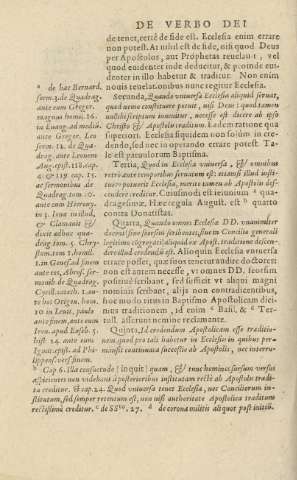 DE VERBO DEI
de tenet, certè de fide est. Ecclesia enim errare
non potest. At nihil est de fide, nisi quod Deus
per Apostolos, aut Prophetas reuelauit, vel
quod euidenter inde deducitur, & proinde euidenter
in illo habetur & traditur. Non enim
nouis reuelationibus nunc regitur Ecclesia.
Secunda, Quando vniuersa Ecclesia aliquid seruat,
quod nemo constituere potuit, nisi Deus: quod tamen
nusquam scriptum inuenitur, necesse est dicere ab ipso
Christo & Apostolis traditum. Eadem ratione qua
superiori. Ecclesia siquidem non solùm in credendo,
sed nec in operando errare potest. Tale
est paruulorum Baptisma.
Tertia, Quod in Ecclesia vniuersa, & omnibus
retro ante temporibus seruatum est: etiamsi illud institui
potuerit Ecclesia, meritò tamen ab Apostolis descendere
creditur. Cuiusmodi est ieiunium quadragesimæ.
Hæc regula August. est b quarto
contra Donatistas.
Quarta, Quando omnes Ecclesiæ DD. vnanimiter
docent
legitimè congregati) aliquid ex Apost. traditione descendere
. Alioquin Ecclesia vniuersa
errare posset, quæ suos tenetur audire doctores:
non est autem necesse, vt omnes DD. seorsim
positi id scribant, sed sufficit vt aliqui magni
nominis scribant, alijs non contradicentibus,
hoc modo ritus in Baptismo Apostolicam diuinitus
traditionem, id enim c Basil. & d Tertull.
asserunt nemine reclamante.
Quinta, Id credendum Apostolicam esse traditionem,
quod pro tali habetur in Ecclesia in quibus permansit
continuata successio ab Apostolis, nec interru-
a de hac Bernard.
serm. 3. de Quadrag.
ante eum Gregor.
magnus homil. 16.
in Euang. ad media.
ante Gregor. Leo
serm. 12. de Quadrag.
ante Leonem
Aug. epist. 118. cap.
4. & 119 cap. 15.
ac sermonibus de
Quadrag. tom. 10.
ante eum Hierony.
in
& Clamauit &
dixit ad vitae quadrag.
tom. 5. Chrysostom.
tom. 1. homil.
1. in Genes. sed finem
ante
b Cap. 6. Illa consuetudo (inquit) quam, & tunc homines sursum versus
aspicientes non videbant à posterioribus institutam rectè ab Apostolis tradita
creditur. & cap. 24. Quod vniuersa tenet Ecclesia, nec Conciliorum institutum,
sed semper retentum est, non nisi authoritate Apostolica traditum
rectissimè creditur. c de SSto. 27. d de corona militis aliquot post initiū.